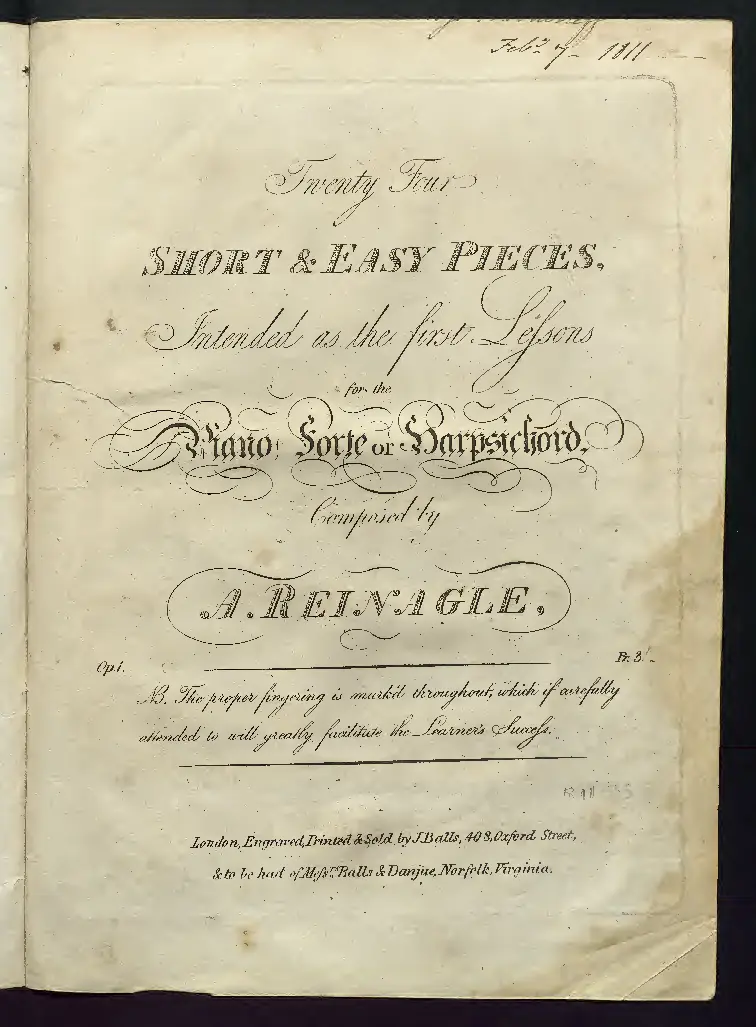 Feby 7 - 1811
Twenty Four
SHORT & EASY PIECES.
Intended as the first Leſsons
for the
Piano Forte or Harpsichord.
Composed by
A. REINAGLE.
Op. 1. Pr. 3/-
NB. The proper fingering is mark'd throughout, which if carefully
attended to will greatly facilitate the Learner's Succeſs.
London, Engraved, Printed & Sold by J. Balls, 408, Oxford Street,
& to be had of Meſsrs. Balls & Danjue, Norfolk, Virginia.